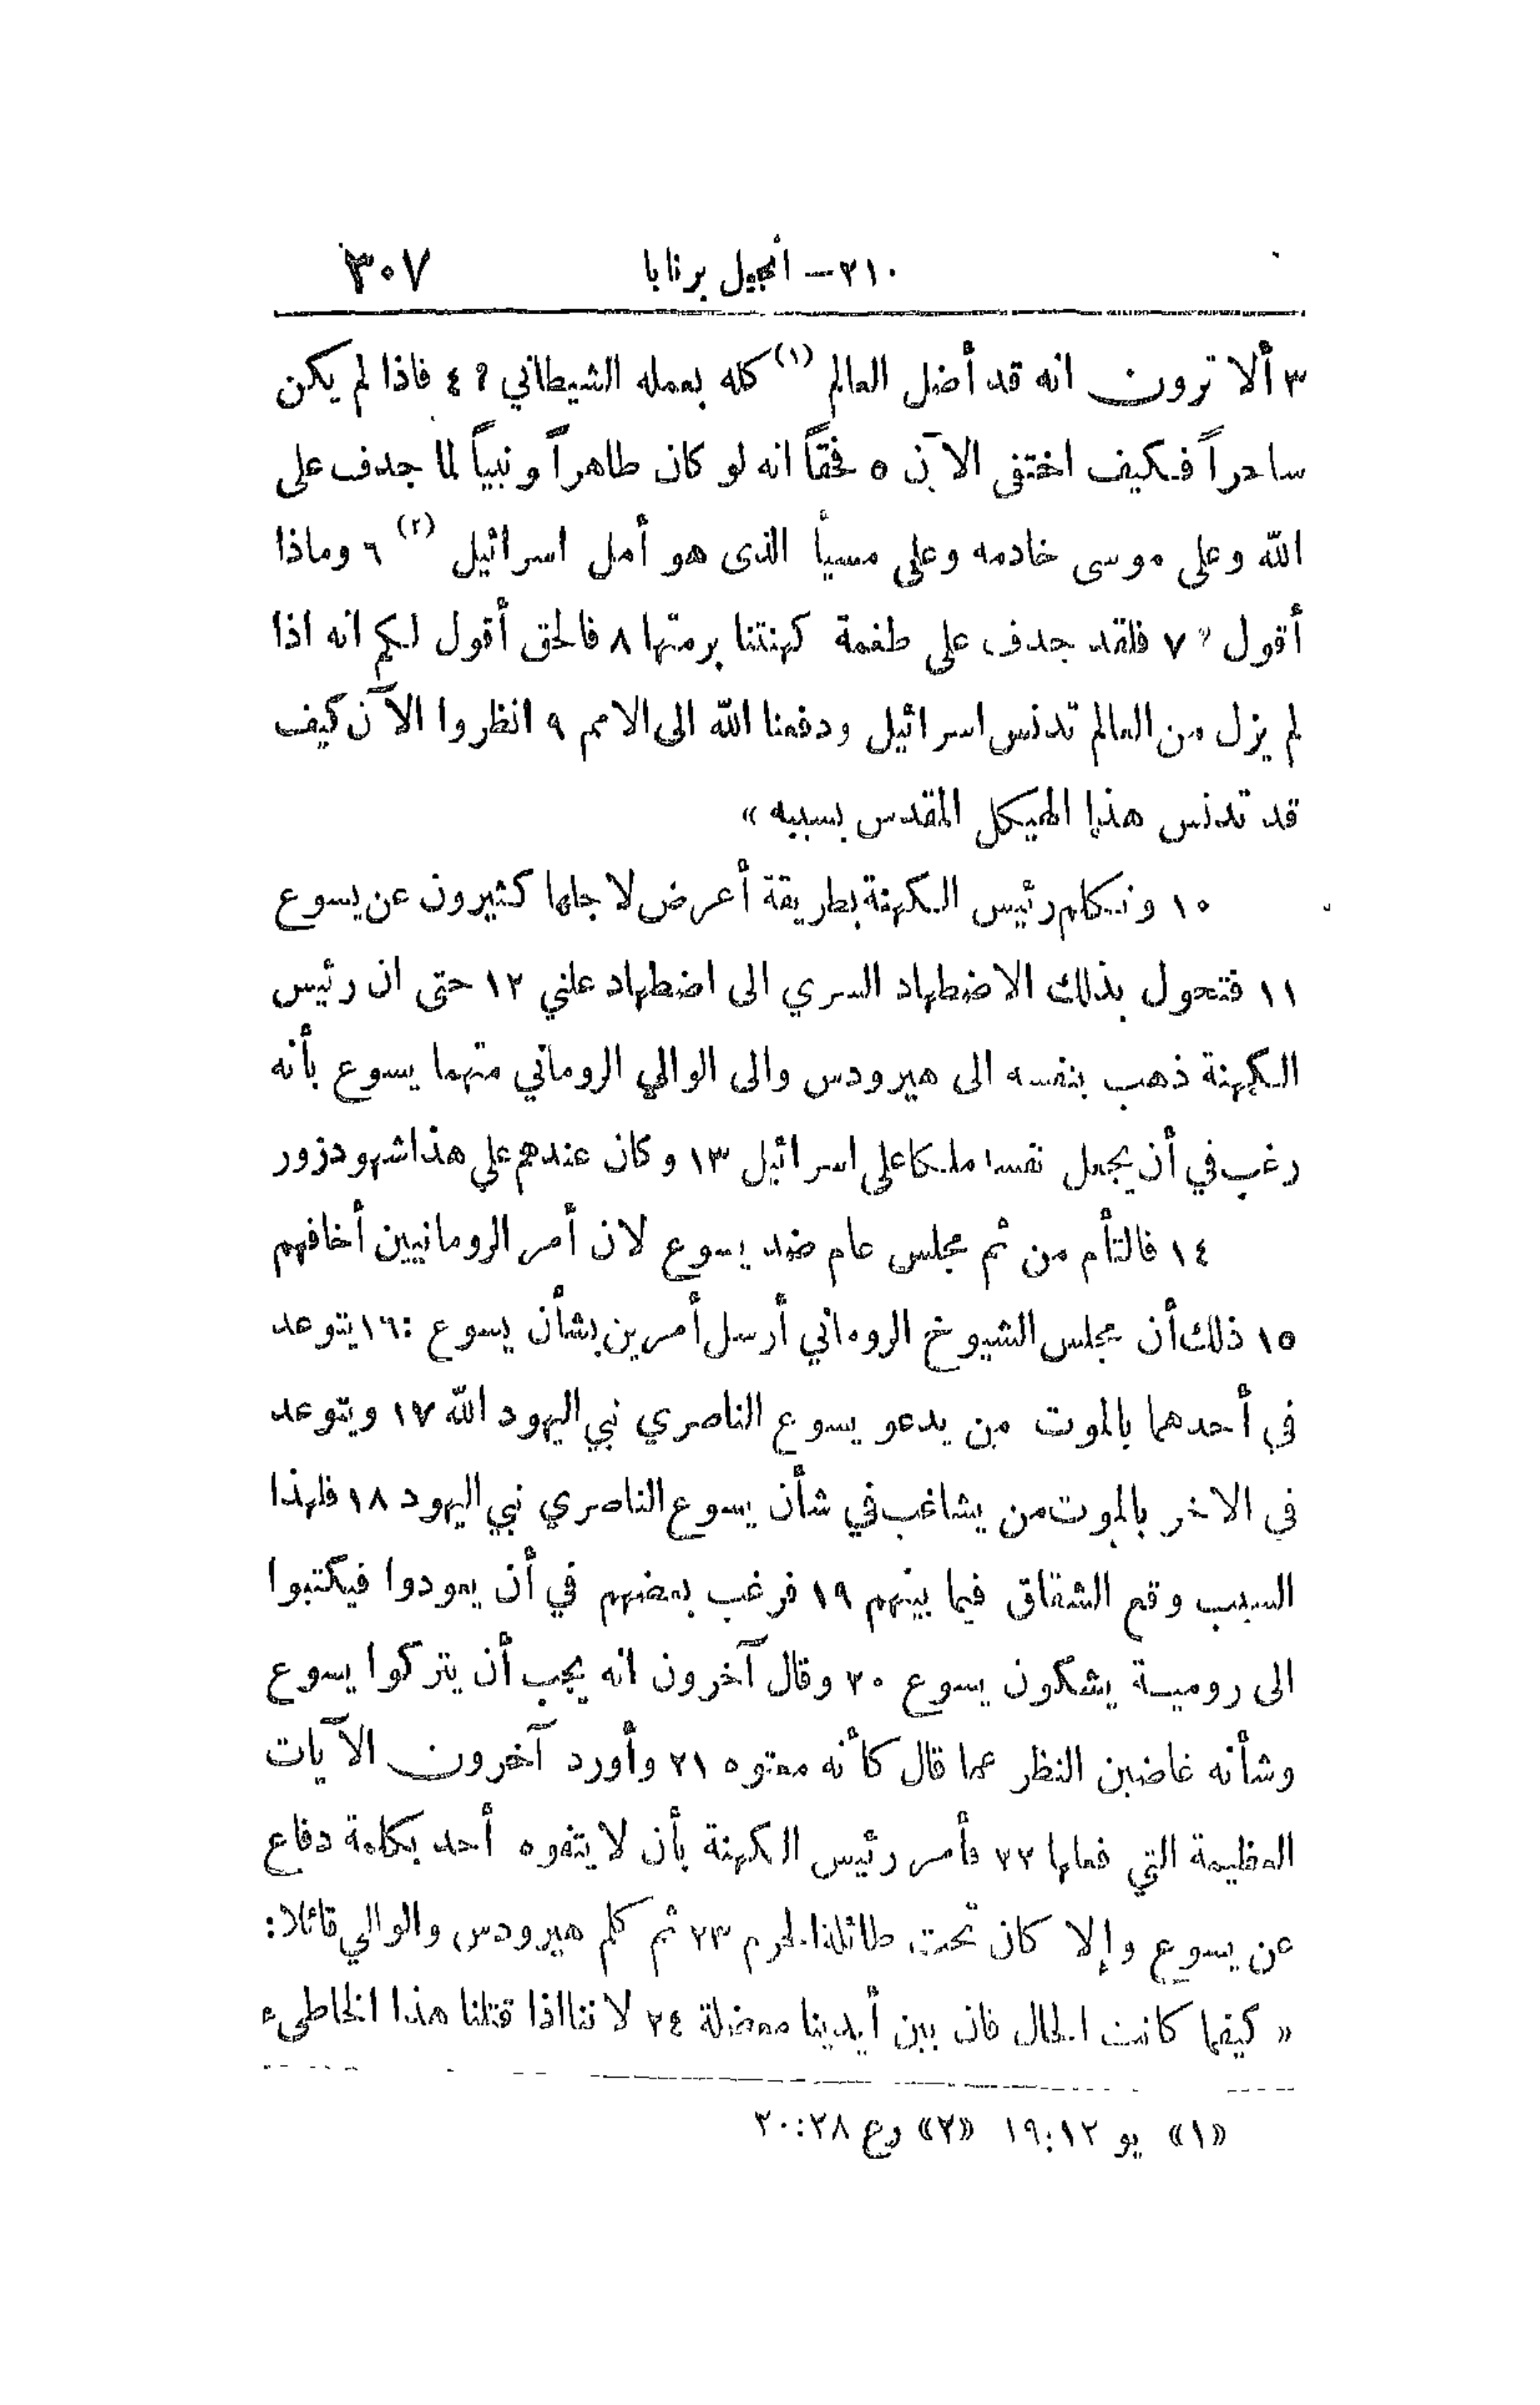 ٢١٠ — انجيل برنابا ٣٠٧
٣ ألا ترون انه قد أضل العالم (١) كله بعمله الشيطاني ؟ ٤ فاذا لم يكن
ساحراً فكيف اختفى الآن ٥ فحقاً انه لو كان طاهراً ونبياً لما جدف على
الله وعلى موسى خادمه وعلى مسيأ الذى هو أمل اسرائيل (٢) ٦ وماذا
أقول ؟ ٧ فلقد جدف على طغمة كهنتنا برمتها ٨ فالحق أقول لكم انه اذا
لم يزل من العالم تدنس اسرائيل ودفعنا الله الى الامم ٩ انظروا الآن كيف
قد تدنس هذا الهيكل المقدس بسببه »
١٠ وتكلم رئيس الكهنة بطريقة أعرض لاجلها كثيرون عن يسوع
١١ فتحول بذلك الاضطهاد السري الى اضطهاد علني ١٢ حتى ان رئيس
الكهنة ذهب بنفسه الى هيرودس والى الوالي الروماني متهما يسوع بأنه
رغب في أن يجعل نفسه ملكا على اسرائيل ١٣ وكان عندهم على هذا شهود زور
١٤ فالتأم من ثم مجلس عام ضد يسوع لان أمر الرومانيين أخافهم
١٥ ذلك أن مجلس الشيوخ الروماني أرسل أمرين بشأن يسوع : ١٦ يتوعد
في أحدهما بالموت من يدعو يسوع الناصري نبي اليهود الله ١٧ ويتوعد
في الاخر بالموت من يشاغب في شأن يسوع الناصري نبي اليهود ١٨ فلهذا
السبب وقع الشقاق فيما بينهم ١٩ فرغب بعضهم في أن يعودوا فيكتبوا
الى رومية يشكون يسوع ٢٠ وقال آخرون انه يجب أن يتركوا يسوع
وشأنه غاضين النظر عما قال كأنه معتوه ٢١ وأورد آخرون الآيات
العظيمة التي فعلها ٢٢ فأمر رئيس الكهنة بأن لا يتفوه أحد بكلمة دفاع
عن يسوع وإلا كان تحت طائلة الحرم ٢٣ ثم كلم هيرودس والوالي قائلا :
« كيفما كانت الحال فان بين أيدينا معضلة ٢٤ لاننا اذا قتلنا هذا الخاطىء
«١» يو ١٢ : ١٩ «٢» رع ٢٨ : ٢٠